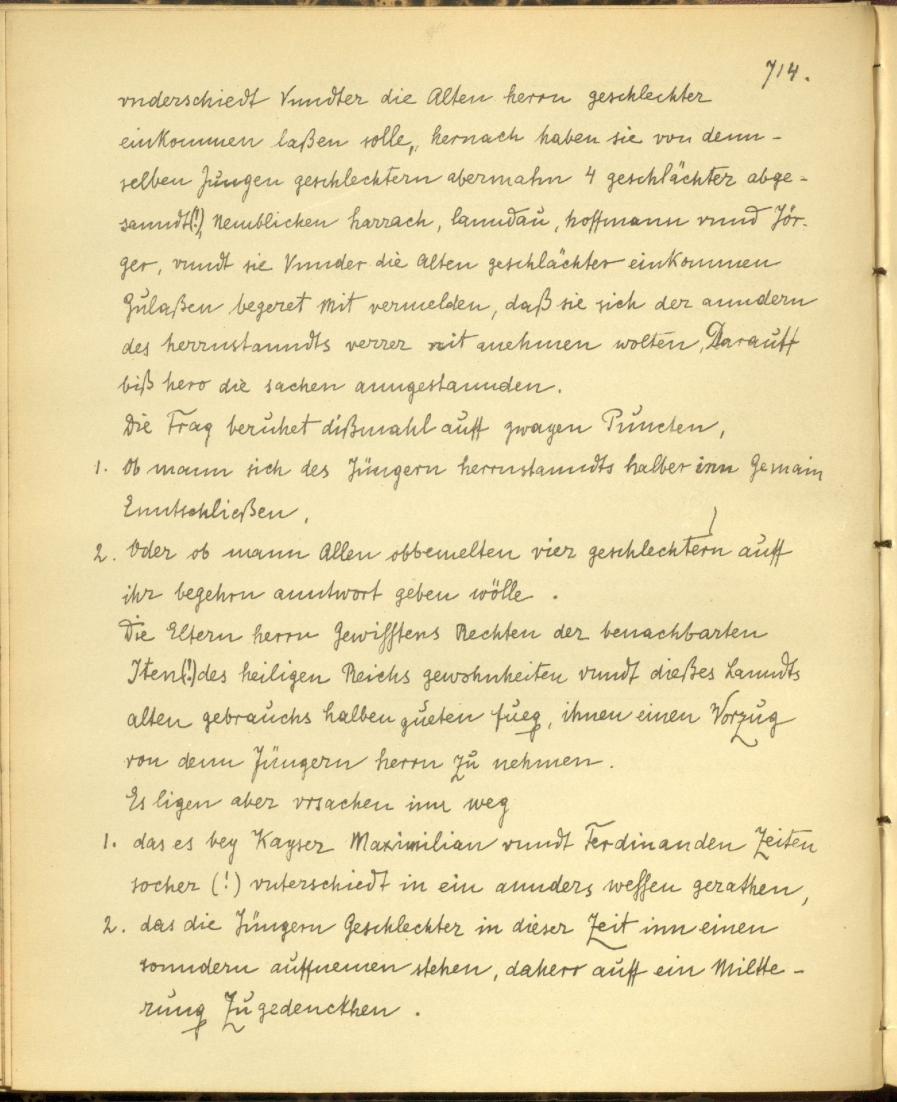 714.
vnderschiedt Vnndter die Alten herrn geschlechter
einkommen laßen solle, hernach haben sie von denn-
selben Jungen geschlechtern abermahn 4 geschlächter abge-
sanndt(!), Nemblichen harrach, lanndau, hoffmann vnnd Jör-
ger, vnndt sie Vnnder die Alten geschlächter einkommen
Zulaßen begeret mit vermelden, daß sie sich der anndern
des herrnstanndts verrer nit anehmen wolten, Darauff
biß hero die sachen anngestannden.
Die Frag beruhet dißmahl auff zwayen Puncten,
1. Ob mann sich des Jüngern herrnstanndts halber inn Gemain
Enntschließen,
2. Oder ob mann Allen obbemelten vier geschlechtern auff
ihr begehrn anntwort geben wölle.
Die Eltern herrn Gewisstens Rechten der benachbarten
Iten(!) des heiligen Reichs gewohnheiten vnndt dießes Lanndts
alten gebrauchs halben gueten fueg, ihnen einen Vorzug
von denn Jüngern herrn zu nehmen.
Es ligen aber vrsachen inn weg
1. das es bey Kayser Maximilian vnndt Ferdinanden Zeiten
socher (!) vnterschiedt in ein annders wessen gerathen,
2. das die Jüngern Geschlechter in dieser Zeit inn einen
sonndern auffnemen stehen, daherr auff ein Miltte-
rung Zugedenckhen.